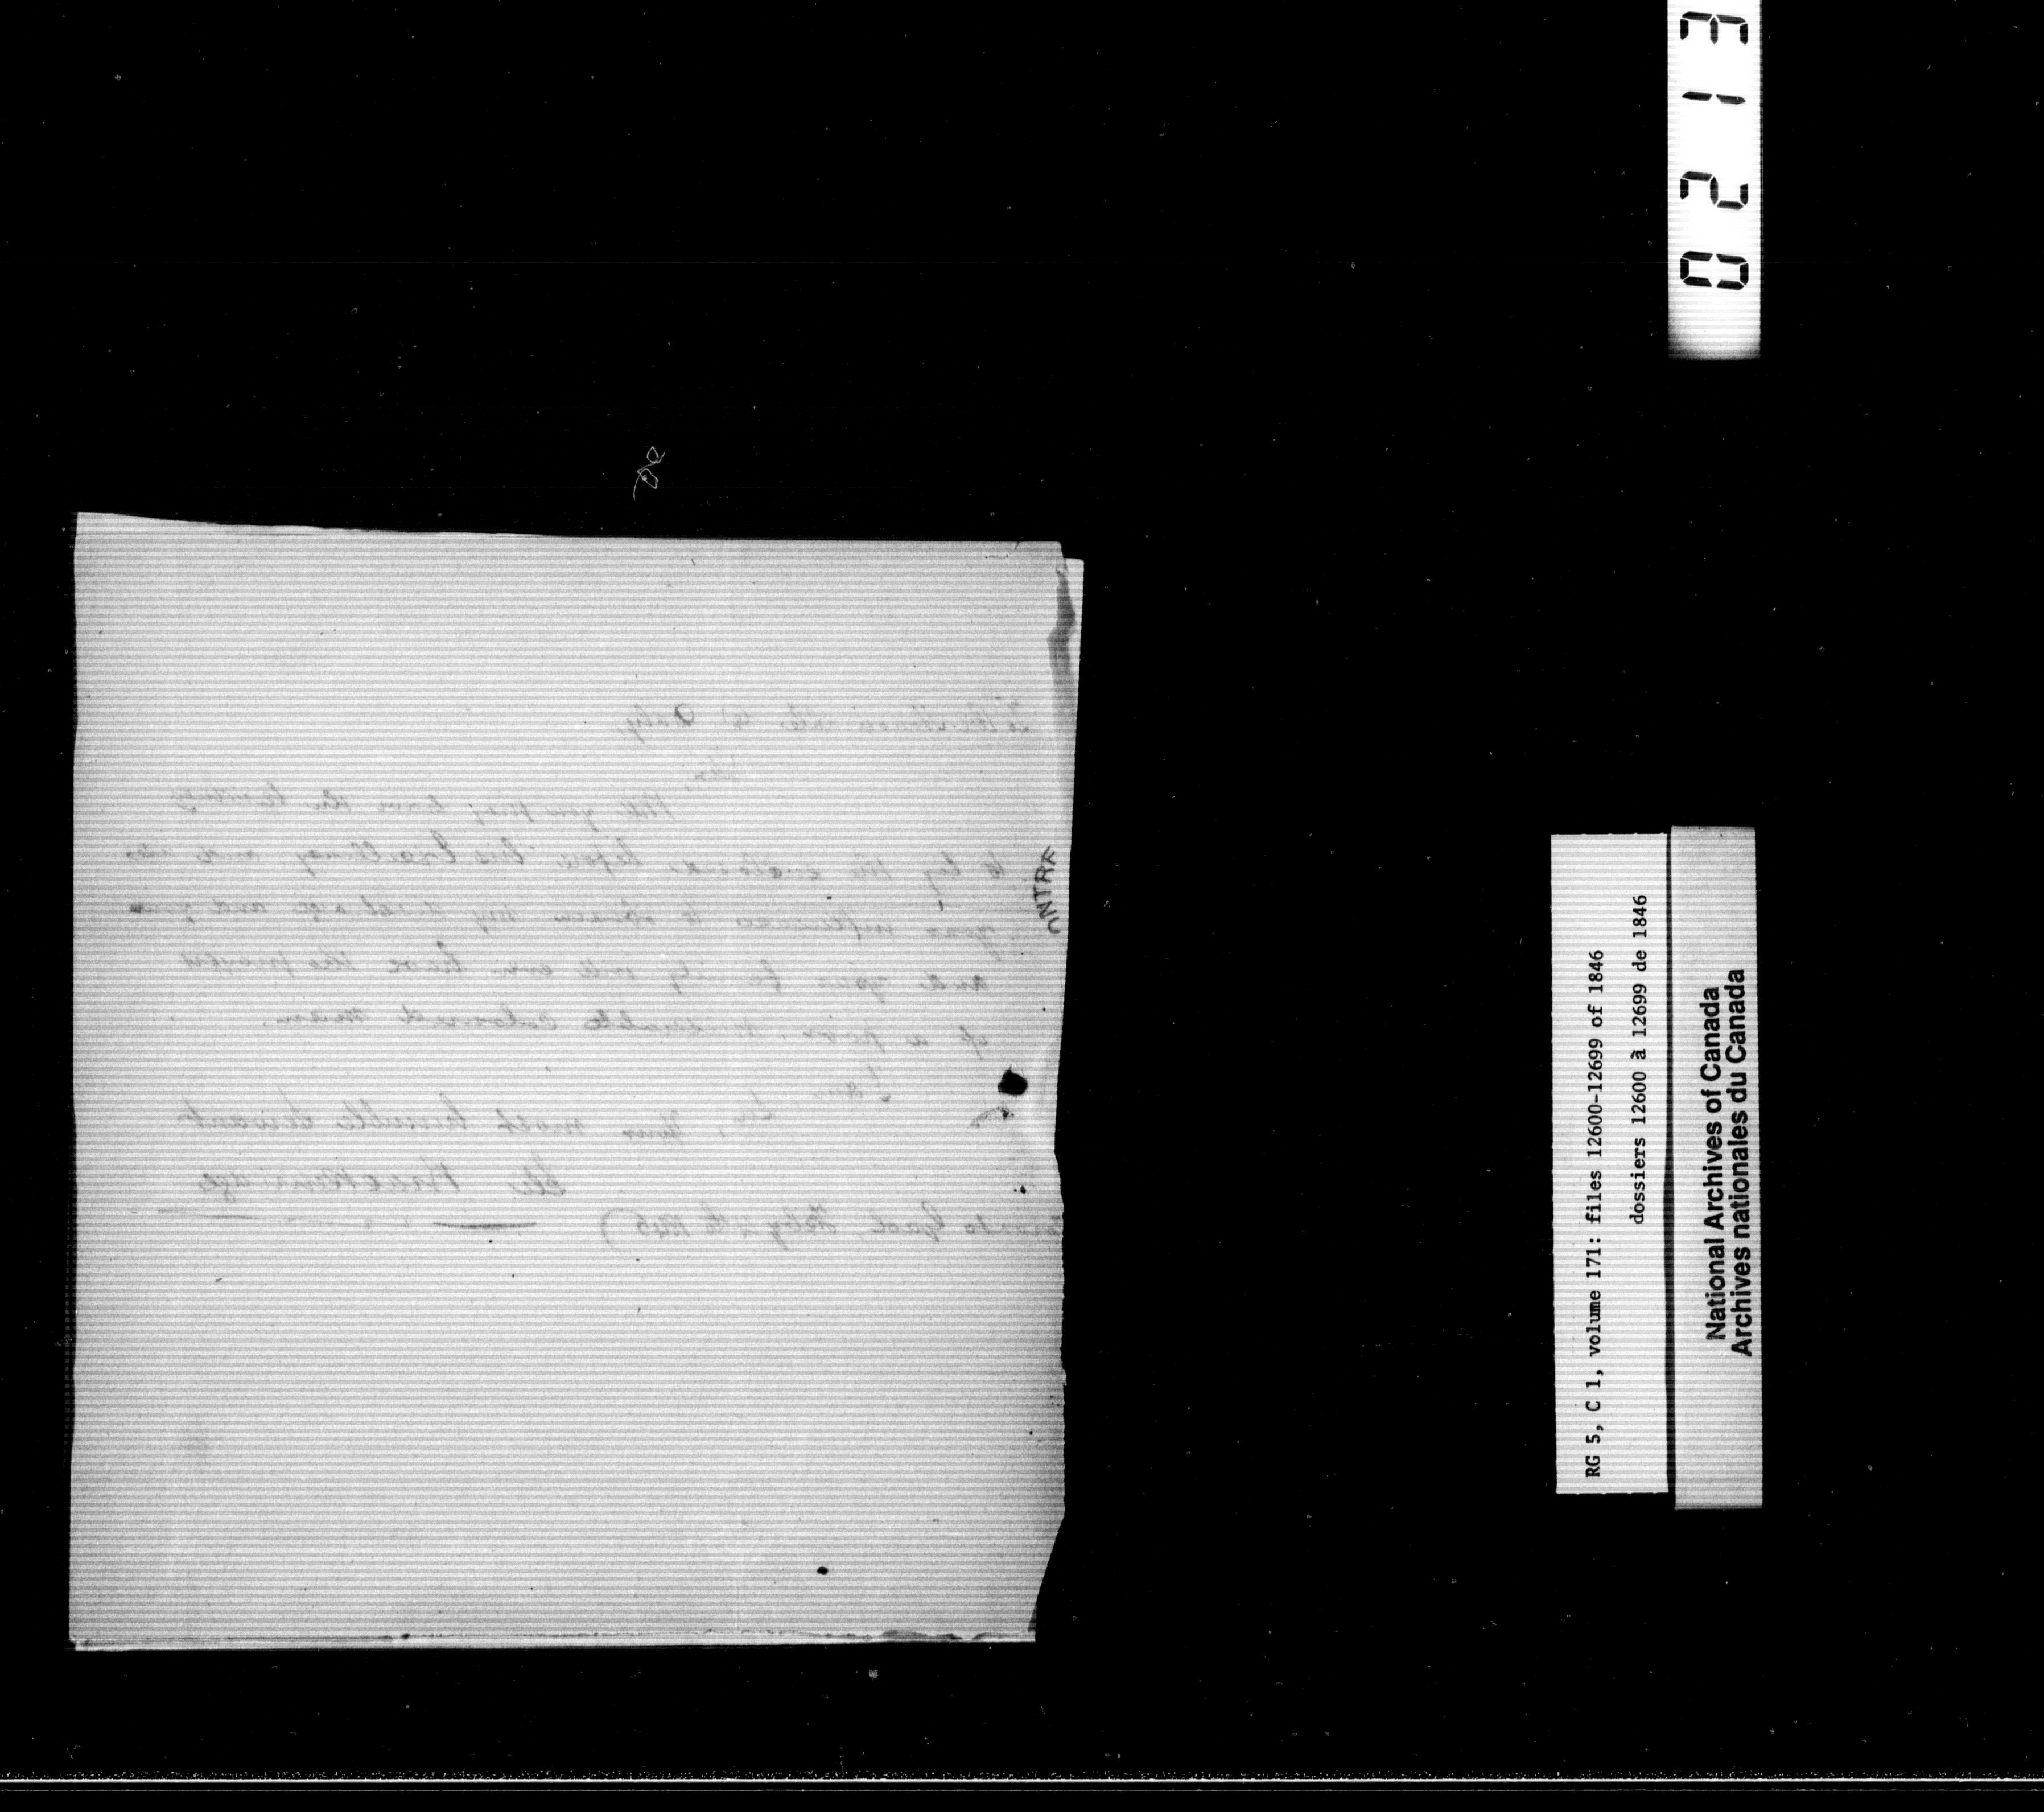 To the Honourable D. Daly,
Sir,
Will you
to lay the enclosed before his Excellency, and use
your influence to obtain my discharge and you
and your family will ever have the prayers
of a poor, miserable coloured man.
I am
Sir, Your most humble Servant
Eli Brackenridge
Toronto Gaol, Feby 4th
0213
RG 5, C 1, volume 171: files 12600-12699 of 1846
dossiers 12600 à 12699 de 1846
National Archives of Canada
Archives nationales du Canada